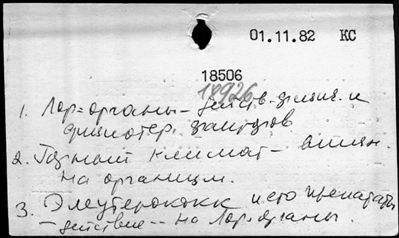 01.11.82 КС
18506
18926
1. Лор-органы - действ. физия. и
физиотер. факторов
2. Горный климат - влиян.
на организм.
3. Элеутерококк и его препараты
- действие - на Лор-органы.